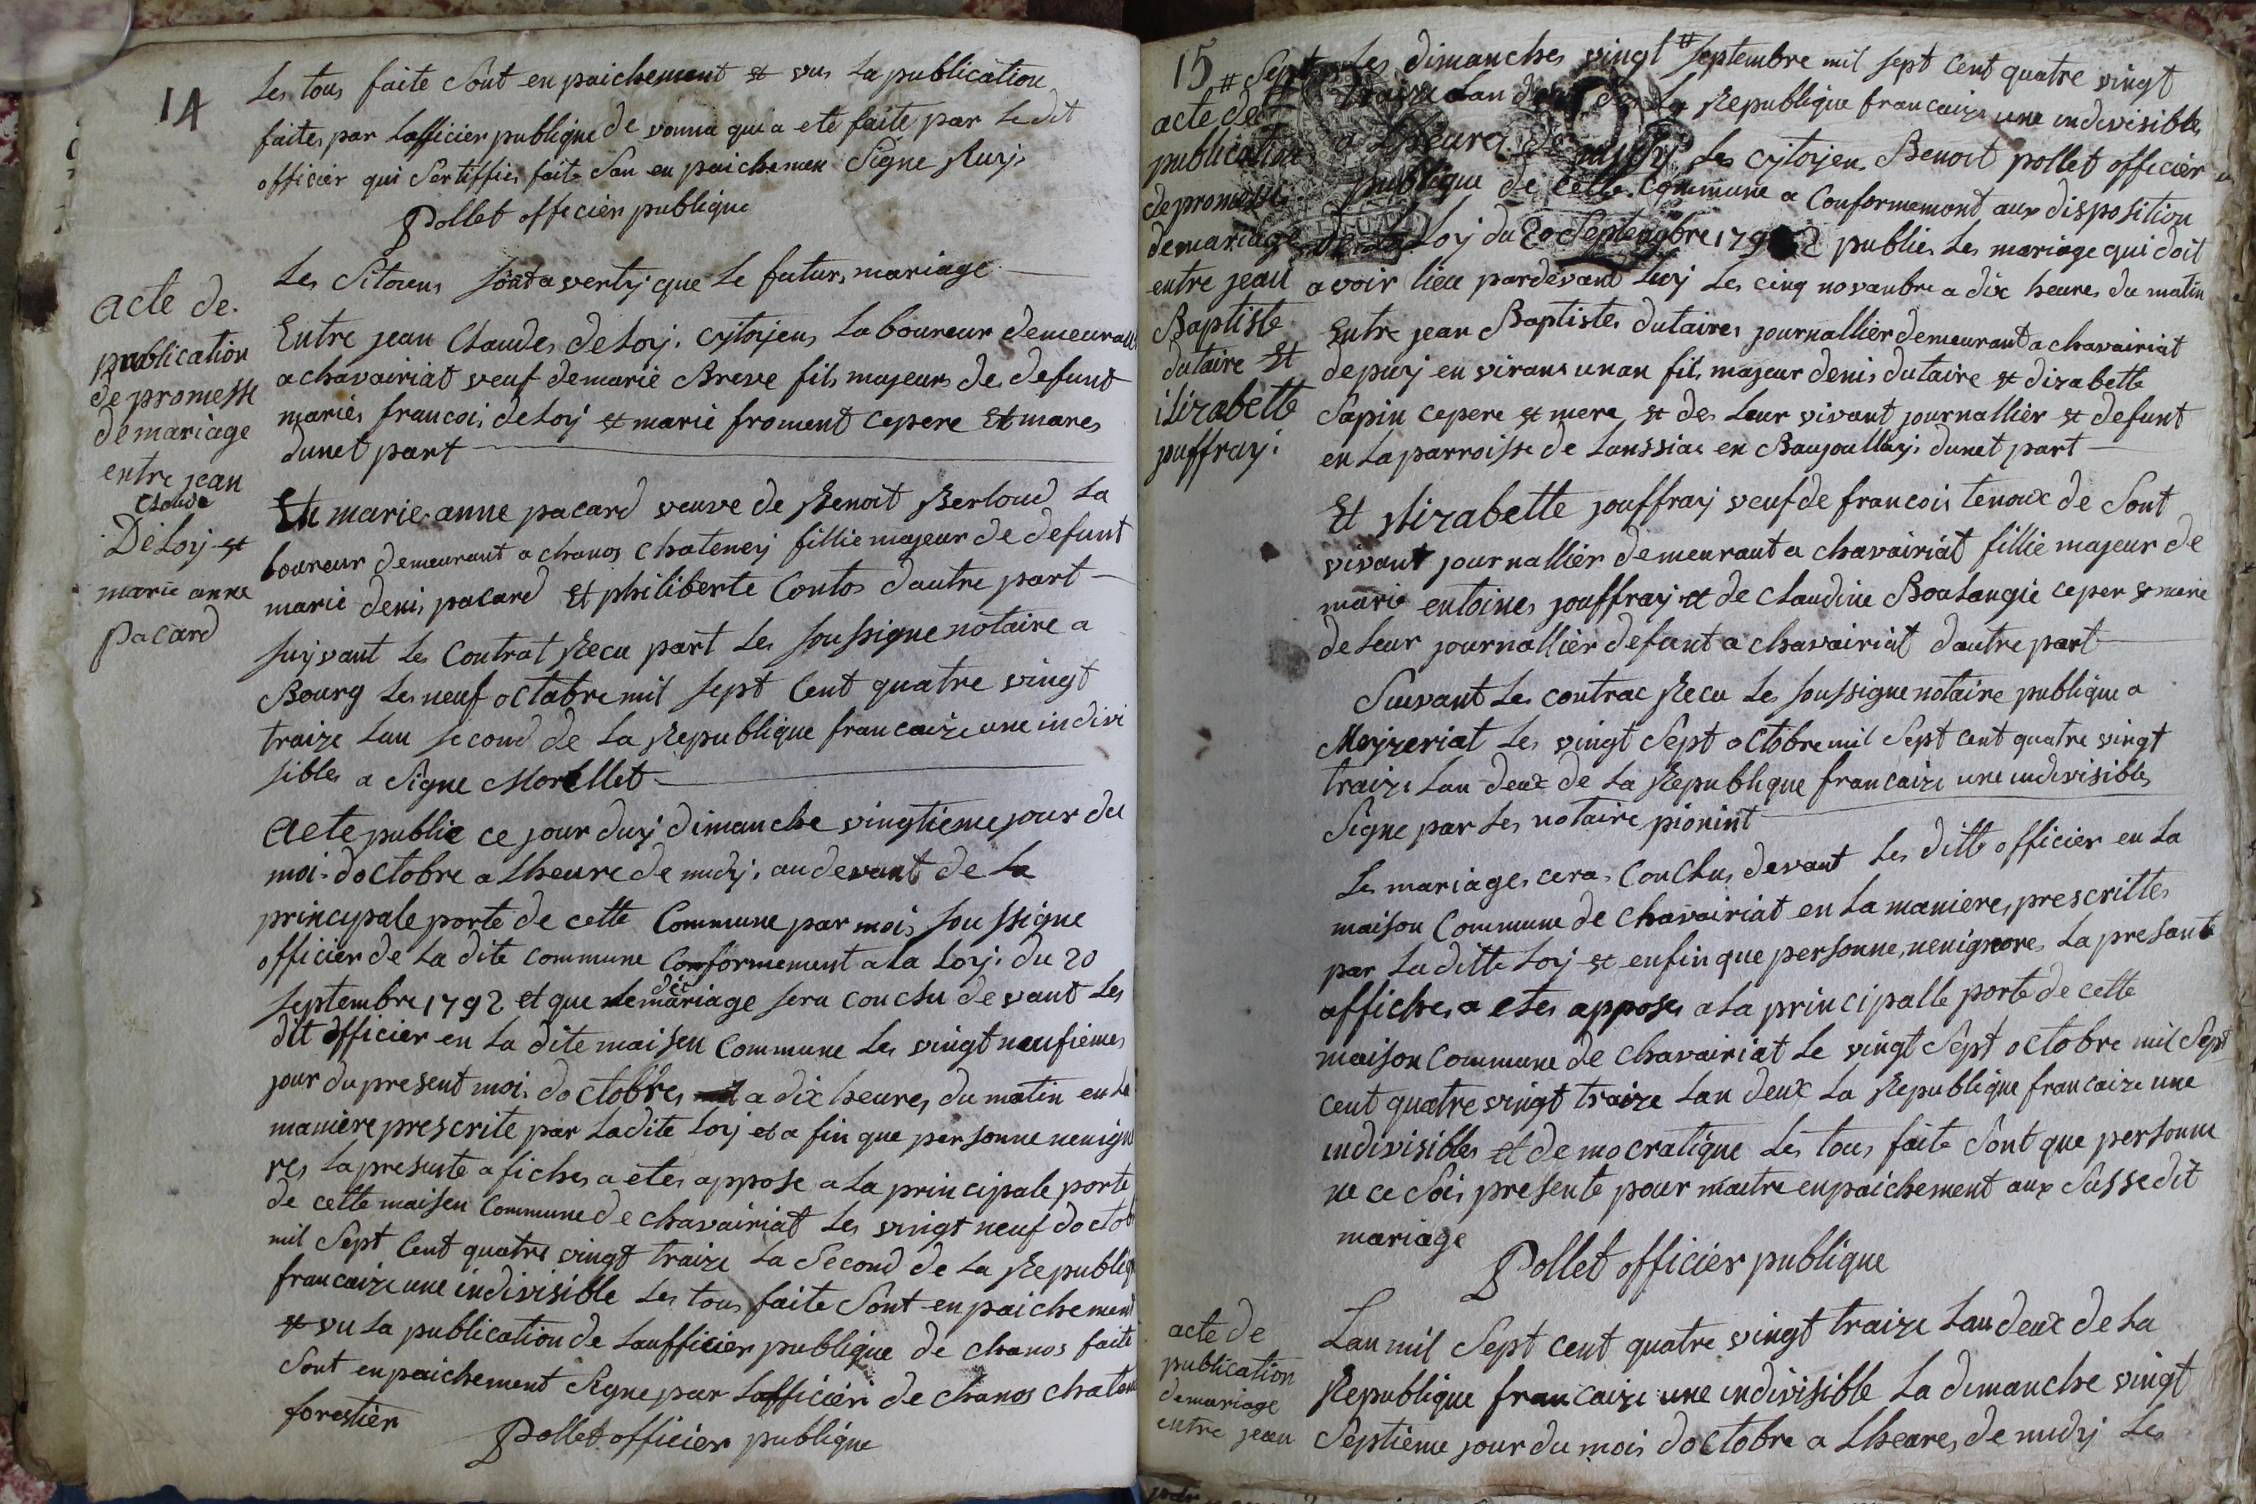 14
Les tous faite Sont en paichement et vus La publication
faites par Lofficier publique de vonna qui a ete faite par Le dit
officier qui Sertiffies faite San en paichemen Signe Ruy
Pollet officier publique
acte de
publication
de promesse
de mariage
entre jean
Claude
DeLoy et
marie anne
pacard
Les Sitoiens Sont avertiy que Le futurs mariage
Entre jean Claudes deLoy cytoyens Laboureur demeurant
a chavairiat veuf de marie Breve fils majeurs de defunt
maries francois deLoy et marie froment cepere Et mares
dunet part
Et marie anne pacard veuve de Benoit Berloud La
boureur demeurant a chanos chateney fillie majeur de defunt
marie denis pacard Et philiberte Contos dautre part
suyvant Les Contrat Recu part Les soussigne notaire a
Bourg Les neuf octobre mil sept Cent quatre vingt
traize Lan second de La Republique francaize une indivi
sibles a Signe Morellet
Acte public ce jour duy dimanche vingtieme jour du
moi doctobre a Lheure de midy au devant de La
principale porte de cette Commune par mois soussigne
officier de La dite commune Conformement a La Loy du 20
septembre 1792 et que le dit mariage sera conclu devant Les
dit officier en La dite maisen Commune Les vingt neufiemes
jour du present moi doctobres a dix heures du matin en La
maniere prescrite par Ladite Loy et a fin que personne nenigno
res La presente afiches a etes appose a La principale porte
de cette maisen Commune de chavairiat Les vingt neuf doctobr
mil Sept Cent quatre vingt traize La Second de La Republiq
francaize une indivisible Les tous faite Sont en paichement
et vu La publication de Laufficier publique de chanos faite
Sont en paichement Signe par Lofficier de chanos chatene
forestier
Pollet officier publique
15
# Sept
acte de
publication
de promesse
de mariage
entre jean
Baptiste
dutaire Et
iLizabette
puffray
Les dimanches vingt # septembre mil sept Cent quatre vingt
traize Lan deux de La Republique francaize une indivisibles
a Lheure de midy Les cytoyen Benoit pollet officier
publique de cette Commune a Conformemont aux disposition
de La Loy du 20 Septembre 1792 publies Les mariage qui doit
avoir lieu pardevant Luy Les cinq novanbre a dix heures du matin
Entre jean Baptistes dutaires journallier demeurant a chavairiat
depuy en virans un an fils majeur denis dutaire et dizabette
Sapin cepere et mere et des Leur vivant journallier et defunt
en La parroisse de Lanssiac en Baujoullay dunet part
Et Lizabette jouffray veuf de francois tenoux de Sont
vivant journallier demeurant a chavairiat fillie majeur de
marie entoines jouffray et de claudine Boulangie ceper et mere
de Leur journallier defunt a chavairiat dautre part
Suivant Les contrac Recu Les soussigne notaire publique a
Meyzeriat Les vingt Sept octobre mil Sept Cent quatre vingt
traize Lan deux de La Republique francaize une indivisibles
Signe par Les notaire pionint
Les mariages cera Conclus devant Les ditte officier en La
maison Commune de chavairiat en La maniere prescrittes
par La ditte Loy et enfin que personne nenignores La presante
affiches a etes apposes a La principalle porte de cette
maison Commune de chavairiat Le vingt Sept octobre mil Sept
cent quatre vingt traize Lan deux La Republique francaize une
indivisibles et democratique Les tous faite Sont que personne
ne ce Sois presente pour maitre en paichement aux Sussedit
mariage
Pollet officier publique
acte de
publication
de mariage
entre jean
Lan mil Sept cent quatre vingt traize Lan deux de La
Republique francaize une indivisible La dimanche vingt
Septieme jour du mois doctobre a Lheures de midy Les